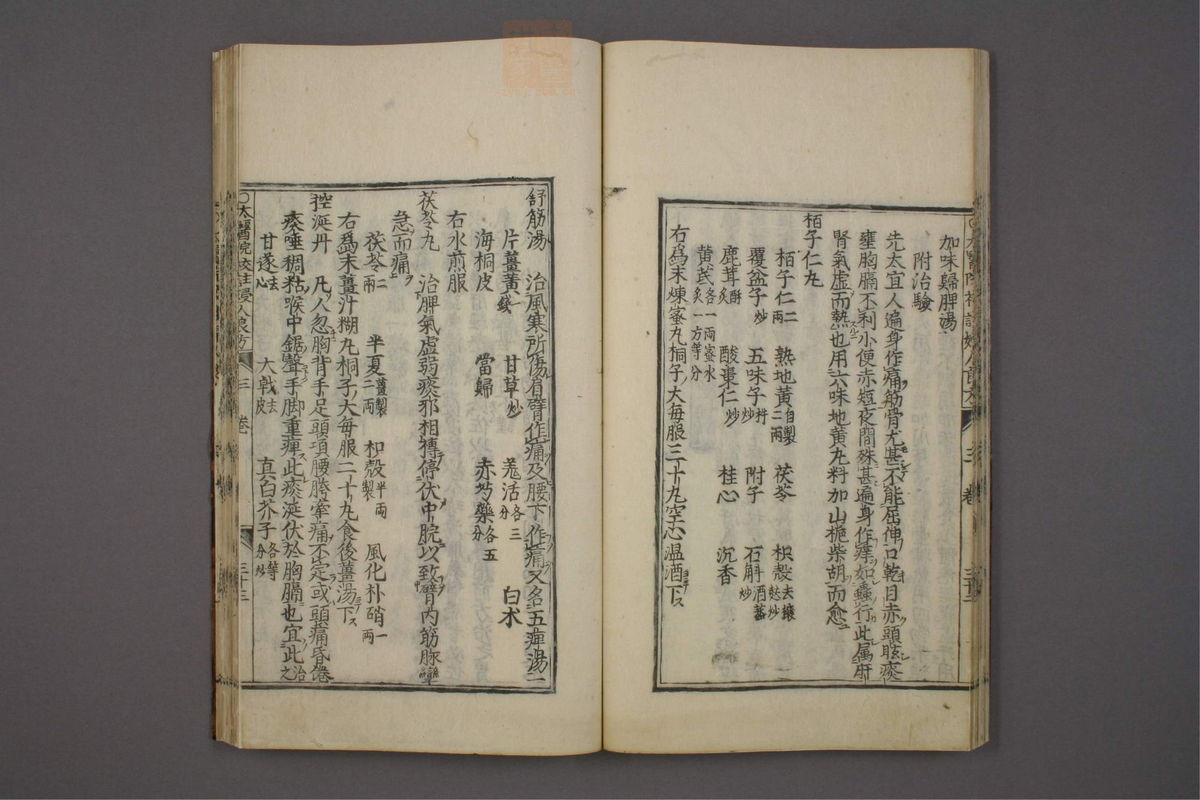 加味歸脾湯
附治驗
先太宜人遍身作痛筋骨尤甚不能屈伸口乾目赤頭眩痰
壅胸膈不利小便赤短夜間殊甚遍身作癢如蟲行此属肝
腎氣虛而熱也用六味地黄丸料加山梔柴胡而愈
栢子仁丸
栢子仁二兩 熟地黄自製二兩 茯苓 枳殼去穰麩炒
覆盆子炒 五味子炒 附子 石斛酒蒸炒
鹿茸酥炙 酸棗仁炒 桂心 沉香
黄芪蜜水炙 各一兩一方等分
右爲末煉蜜丸桐子大每服三十丸空心温酒下
舒筋湯 治風寒所傷肩臂作痛及腰下作痛又名五痺湯
片薑黄二錢 甘草炒 羌活各三分 白术
海桐皮 當歸 赤芍藥各五分
右水煎服
茯苓丸 治脾氣虛弱痰邪相搏停伏中脘以致臂内筋脉攣
急而痛
茯苓二兩 半夏薑製二兩 枳殼半兩製 風化朴硝一兩
右爲末薑汁糊丸桐子大每服二十丸食後薑湯下
控涎丹 凡人忽胸背手足頭項腰胯牽痛不定或頭痛昏倦
痰唾稠粘喉中鋸聲手脚重痺此痰涎伏於胸膈也宜此治之
甘遂去心 大戟去皮 真白芥子各等分炒
○太醫院校註婦人良方 三卷 三十三